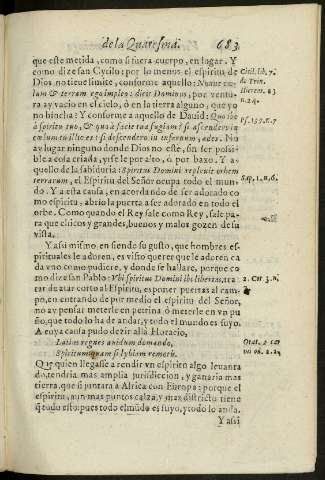 de la Quaresma. 683
que este metida, como si fuera cuerpo, en lugar. Y
como dize san Cyrilo: por lo menos el espiritu de
Dios no tiene limite, conforme aquello: Nunc cæ-
lum & terram ego impleo: dicit Dominus, por ventu-
ra ay vacio en el cielo, ò en la tierra alguno, que yo
no hincha? Y conforme a aquello de Dauid: Quo ibo
à spiritu tuo, & quò à facie tua fugiam? si ascendero in
cælum tu illic es: si descendero in infernum, ades. No
ay lugar ninguno donde Dios no este, sin ser possi-
ble a cosa criada, yrse le por alto, ò por baxo. Y a
aquello de la sabiduria: Spiritus Domini repleuit orbem
terrarum, el Espiritu del Señor ocupa todo el mun-
do. Y a esta causa, en acordando de ser adorado co
mo espiritu, abrio la puerta a ser adorado en todo el
orbe. Como quando el Rey sale como Rey, sale pa-
ra que chicos y grandes, buenos y malos gozen de su
vista.
Y assi mismo, en siendo su gusto, que hombres es-
pirituales le adoren, es visto querer que le adoren ca
da vno como pudiere, y donde se hallare, porque co
mo dize san Pablo: Vbi spiritus Domini ibi libertas, tra
tar de atar corto al Espiritu, es poner puertas al cam
po, en entrando de por medio el espiritu del Señor,
no ay pensar meterle en petrina ò meterle en vn pu
ño, que todo lo ha de andar, y todo el mundo es suyo.
A cuya causa pudo dezir allà Horacio,
Latius regnes auidum domando,
Spiritum quam si Lybiam remotis.
Que quien llegasse a rendir vn espiritu algo leuanta
do, tendria mas amplia jurisdiccion, y ganaria mas
tierra, que si juntara a Africa con Europa: porque el
espiritu, aun mas puntos calza, y mas districto tiene
q̃ todo esto: pues todo el mũdo es suyo, y todo lo anda.
Y assi
Ciril. lib. 7.
de Trin.
Hierem. 23
n. 24.
Ps. 137. n. 7
Sap. 1. n. 6.
2. Cor 3. n.